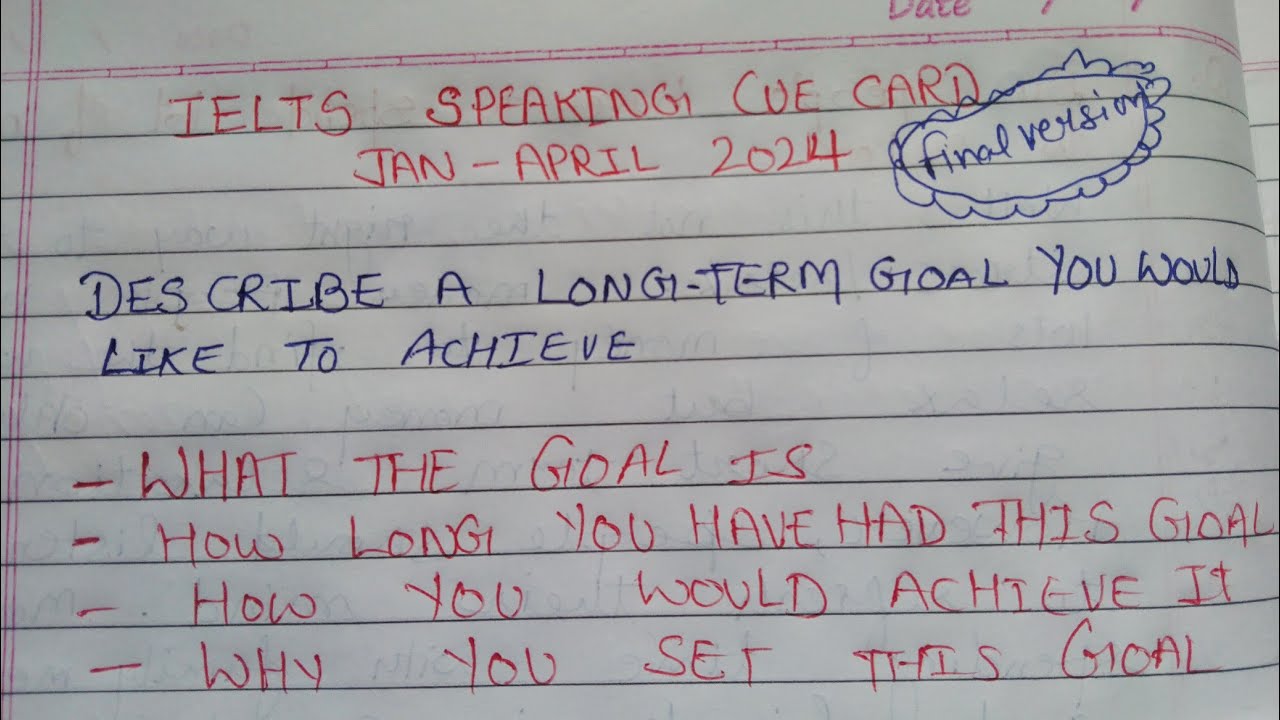 Date / /
IELTS SPEAKING CUE CARD
final version
JAN - APRIL 2024
DESCRIBE A LONG-TERM GOAL YOU WOULD
LIKE TO ACHIEVE
- WHAT THE GOAL IS
- HOW LONG YOU HAVE HAD THIS GOAL
- HOW YOU WOULD ACHIEVE It
- WHY YOU SET THIS GOAL